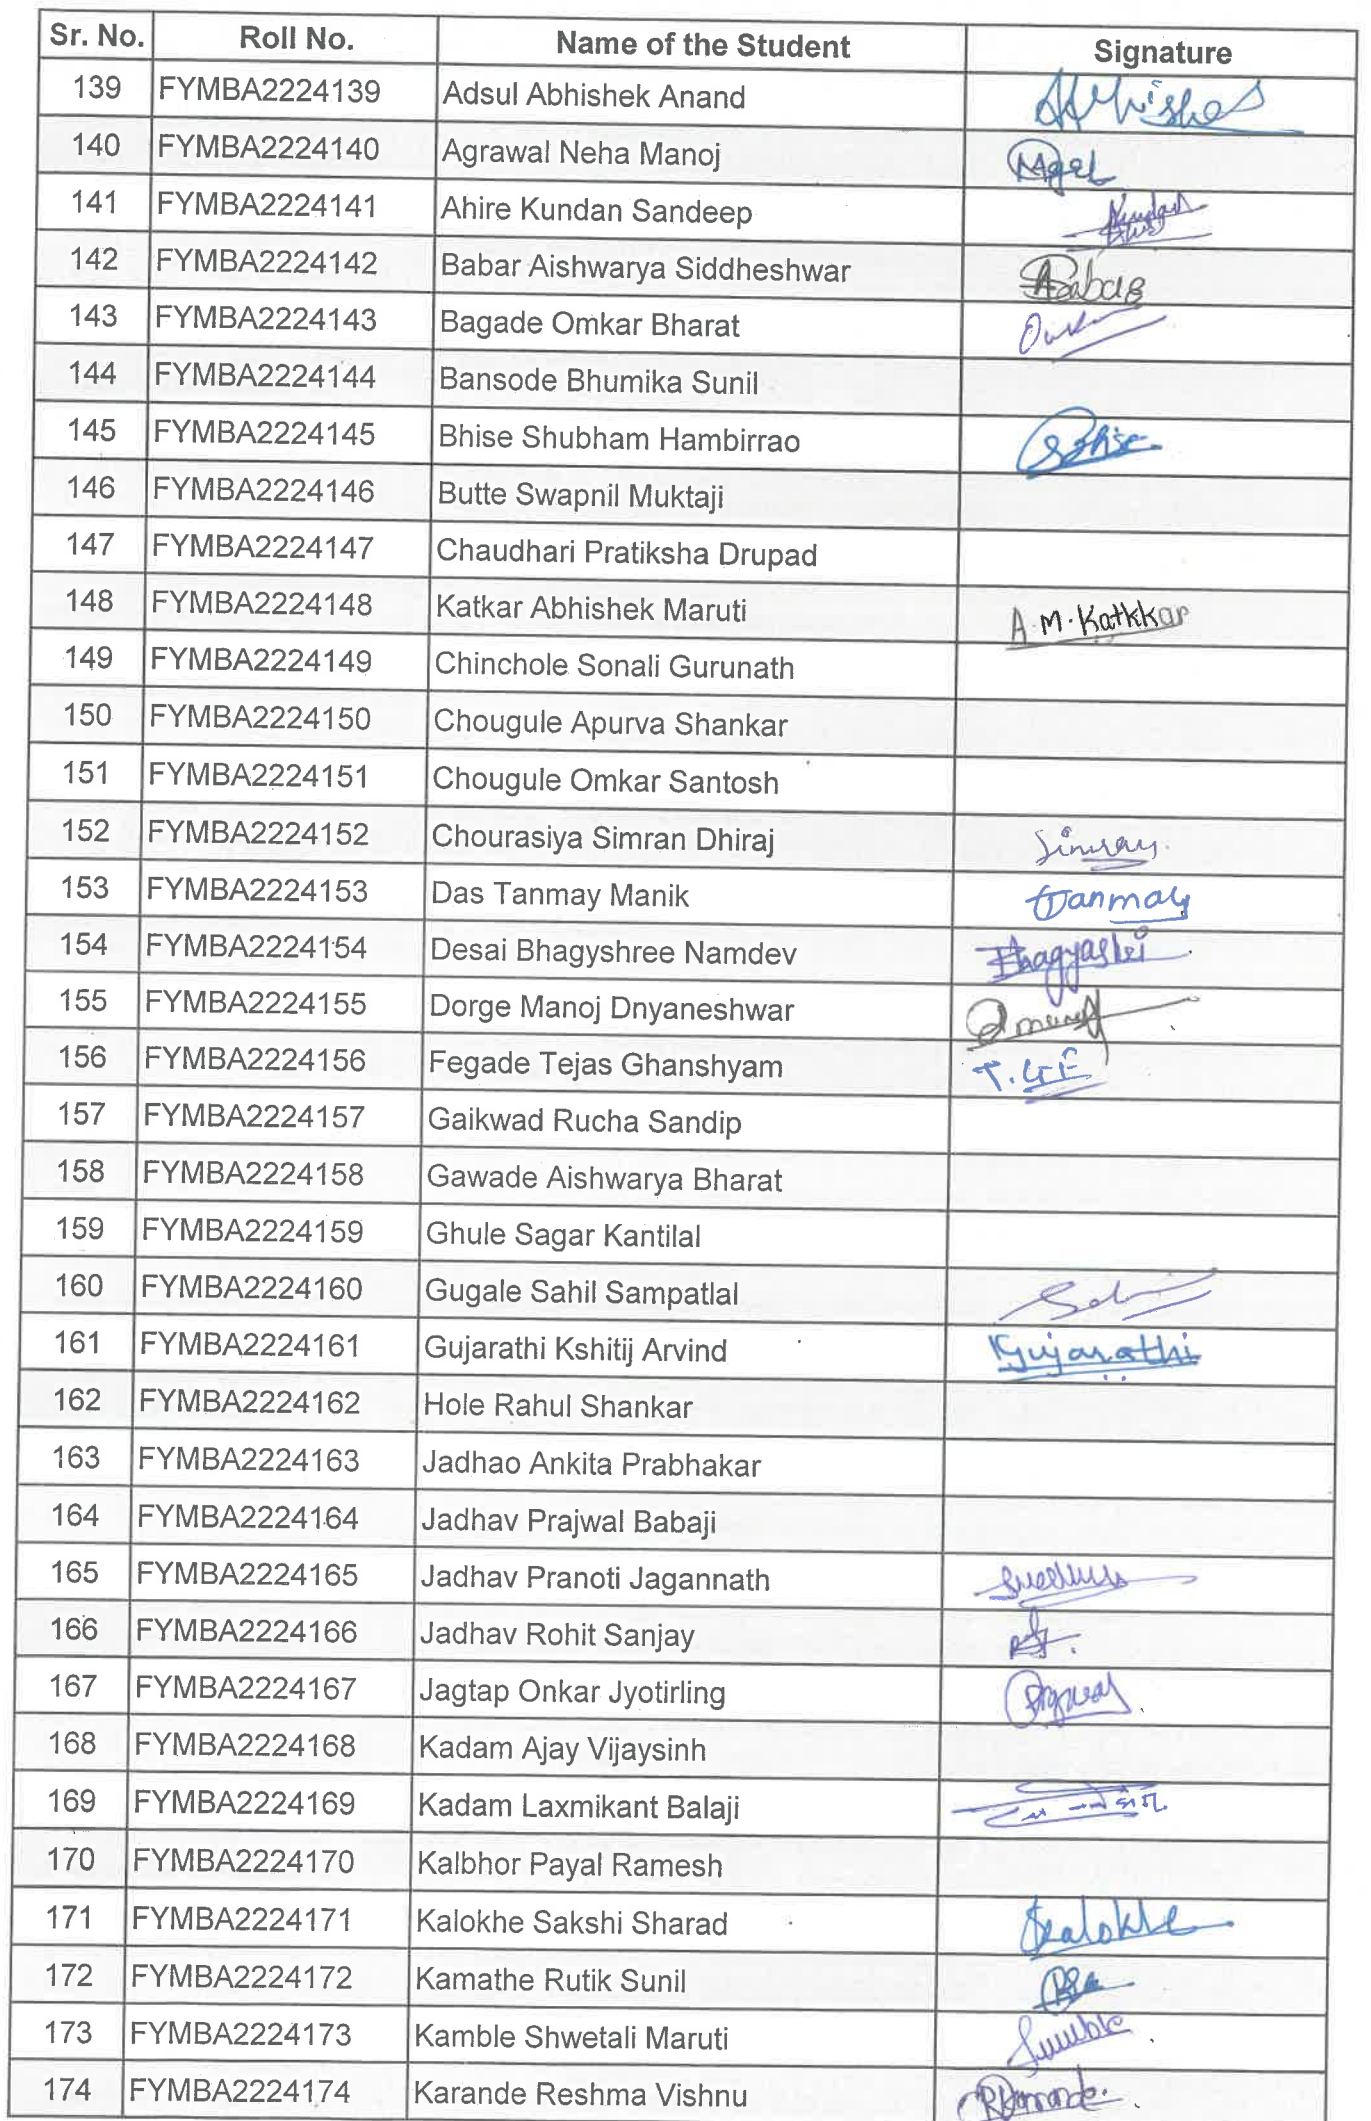 Sr. No. Roll No. Name of the Student Signature
139 FYMBA2224139 Adsul Abhishek Anand Abhishek
140 FYMBA2224140 Agrawal Neha Manoj
141 FYMBA2224141 Ahire Kundan Sandeep Kundan
142 FYMBA2224142 Babar Aishwarya Siddheshwar
143 FYMBA2224143 Bagade Omkar Bharat
144 FYMBA2224144 Bansode Bhumika Sunil
145 FYMBA2224145 Bhise Shubham Hambirrao
146 FYMBA2224146 Butte Swapnil Muktaji
147 FYMBA2224147 Chaudhari Pratiksha Drupad
148 FYMBA2224148 Katkar Abhishek Maruti A.M.Katkkar
149 FYMBA2224149 Chinchole Sonali Gurunath
150 FYMBA2224150 Chougule Apurva Shankar
151 FYMBA2224151 Chougule Omkar Santosh
152 FYMBA2224152 Chourasiya Simran Dhiraj Simran
153 FYMBA2224153 Das Tanmay Manik Tanmay
154 FYMBA2224154 Desai Bhagyshree Namdev Bhagyashri
155 FYMBA2224155 Dorge Manoj Dnyaneshwar
156 FYMBA2224156 Fegade Tejas Ghanshyam T.G.F
157 FYMBA2224157 Gaikwad Rucha Sandip
158 FYMBA2224158 Gawade Aishwarya Bharat
159 FYMBA2224159 Ghule Sagar Kantilal
160 FYMBA2224160 Gugale Sahil Sampatlal
161 FYMBA2224161 Gujarathi Kshitij Arvind Gujarathi
162 FYMBA2224162 Hole Rahul Shankar
163 FYMBA2224163 Jadhao Ankita Prabhakar
164 FYMBA2224164 Jadhav Prajwal Babaji
165 FYMBA2224165 Jadhav Pranoti Jagannath
166 FYMBA2224166 Jadhav Rohit Sanjay
167 FYMBA2224167 Jagtap Onkar Jyotirling
168 FYMBA2224168 Kadam Ajay Vijaysinh
169 FYMBA2224169 Kadam Laxmikant Balaji
170 FYMBA2224170 Kalbhor Payal Ramesh
171 FYMBA2224171 Kalokhe Sakshi Sharad Skalokhe
172 FYMBA2224172 Kamathe Rutik Sunil
173 FYMBA2224173 Kamble Shwetali Maruti
174 FYMBA2224174 Karande Reshma Vishnu